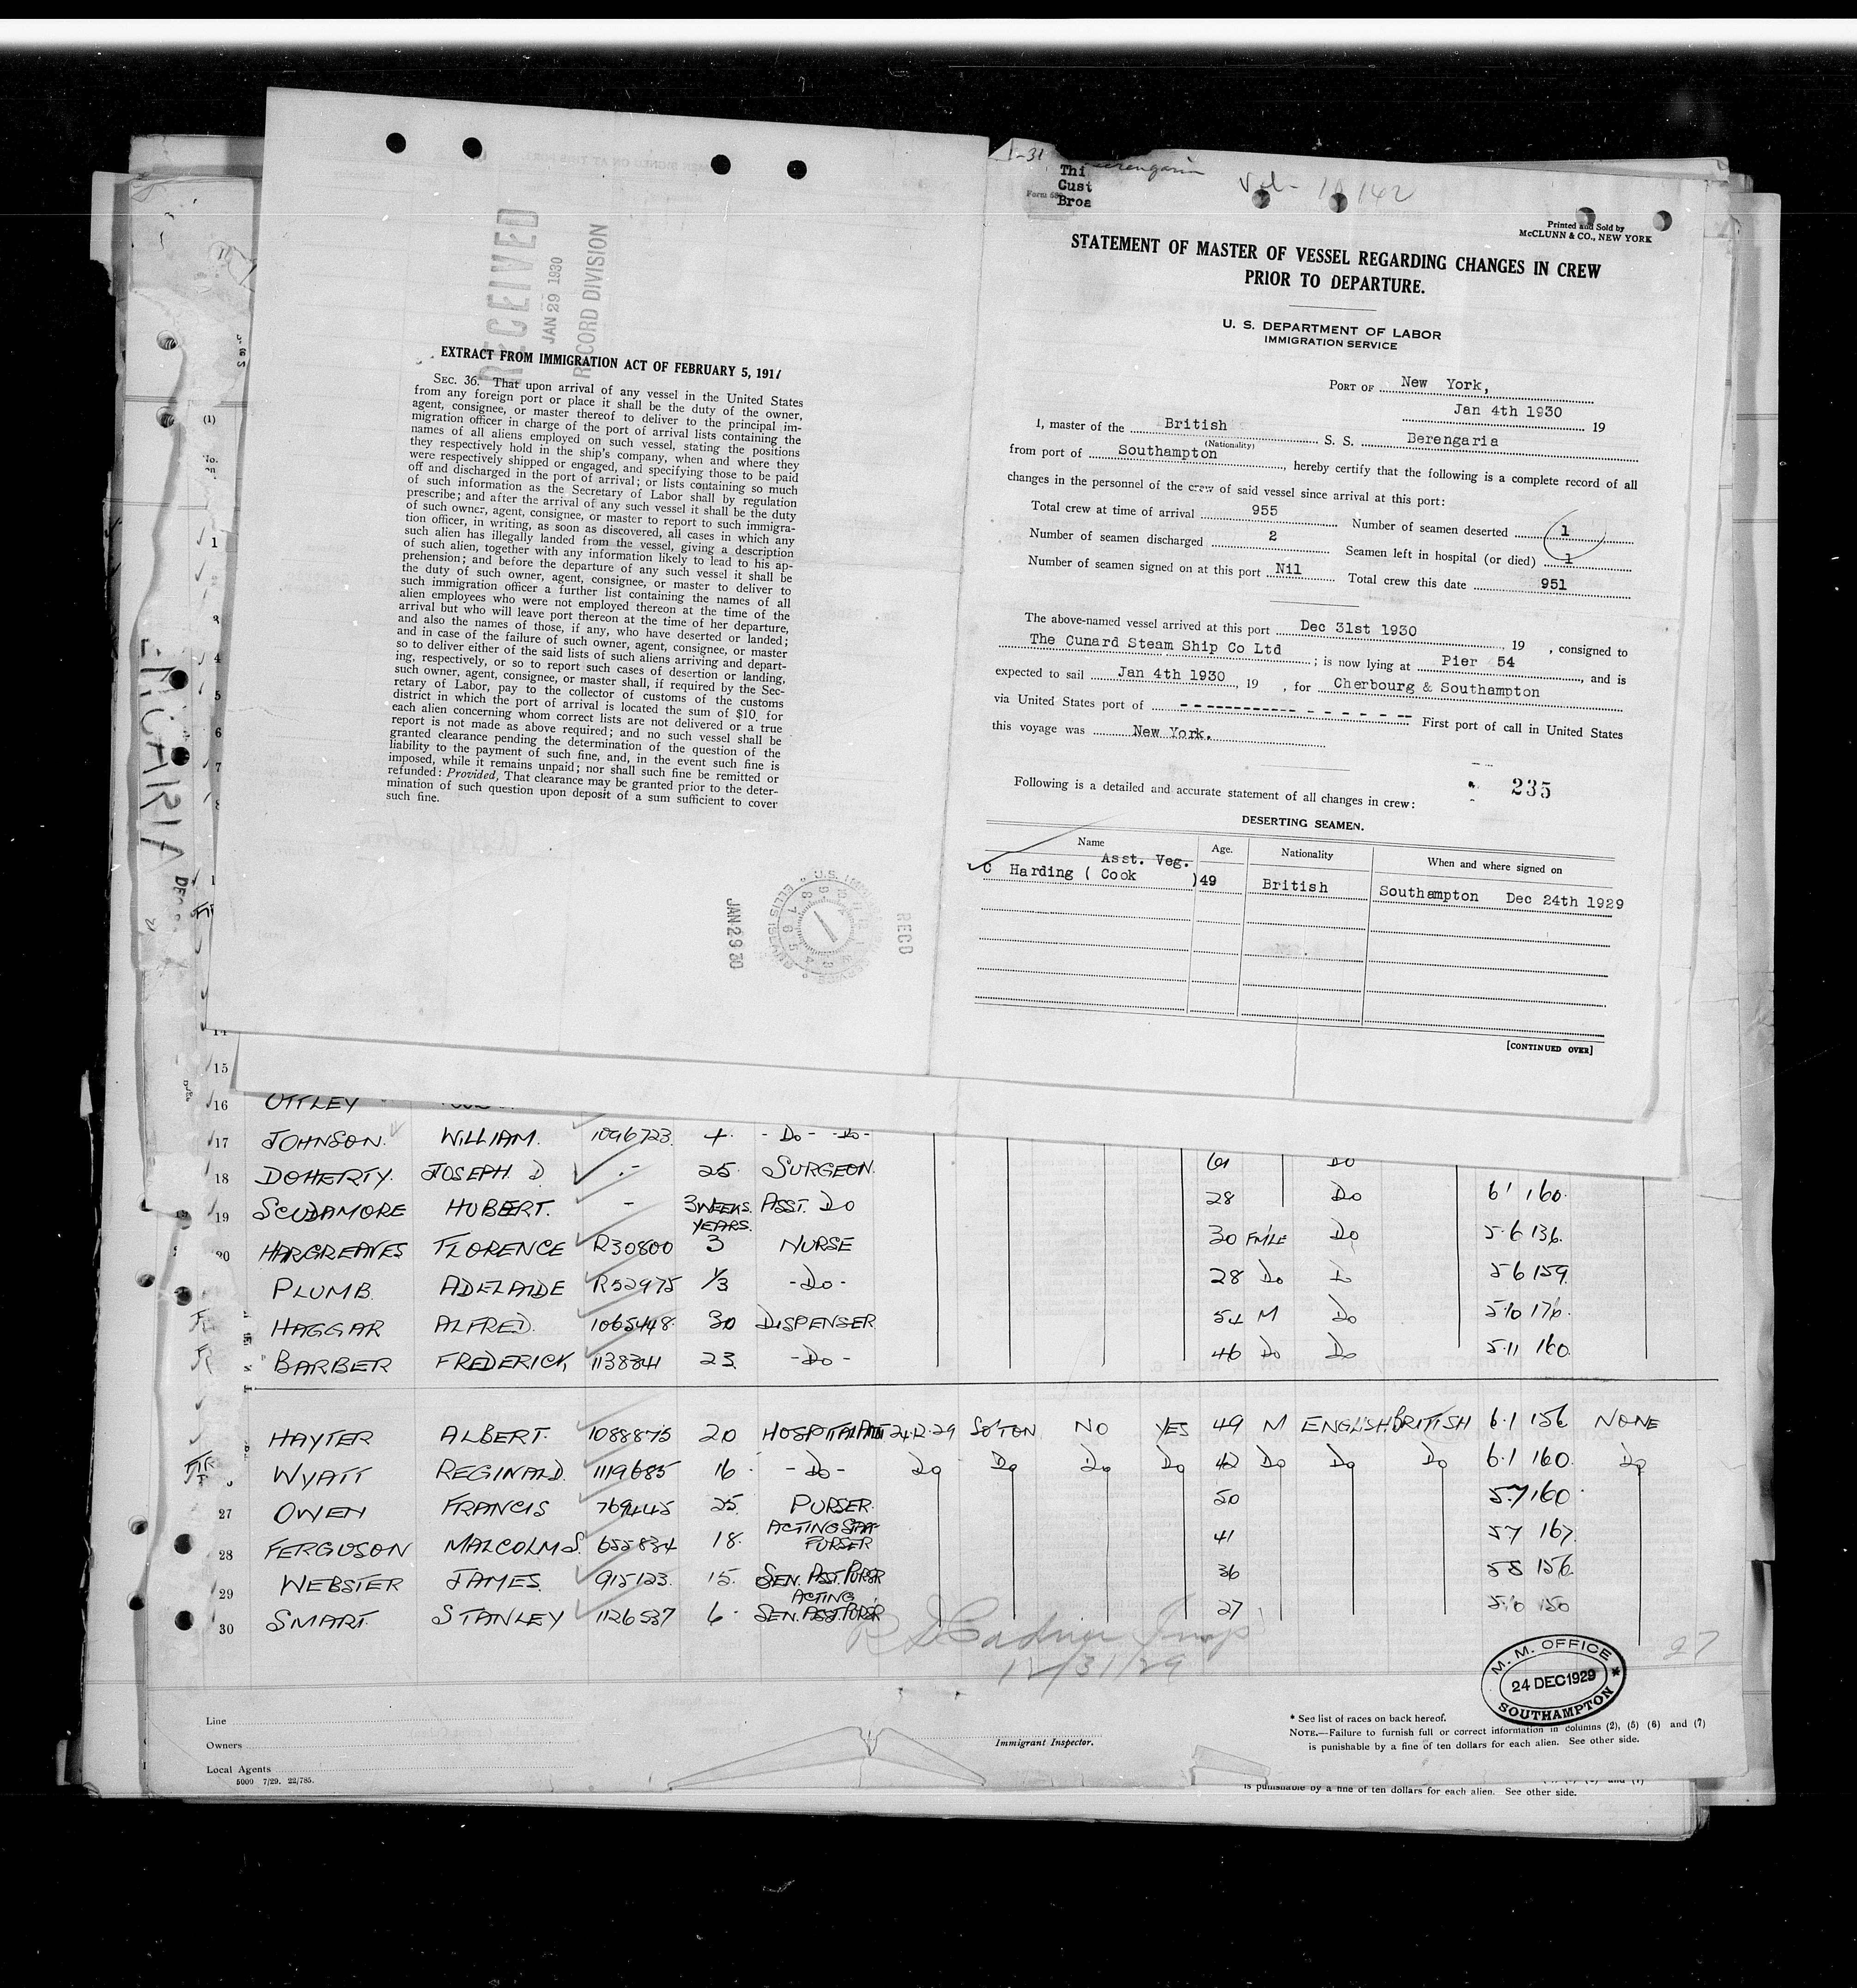 RECEIVED
JAN 29 1930
RECORD DIVISION
EXTRACT FROM IMMIGRATION ACT OF FEBRUARY 5, 1917
SEC. 36. That upon arrival of any vessel in the United States
from any foreign port or place it shall be the duty of the owner,
agent, consignee, or master thereof to deliver to the principal im-
migration officer in charge of the port of arrival lists containing the
names of all aliens employed on such vessel, stating the positions
they respectively hold in the ship's company, when and where they
were respectively shipped or engaged, and specifying those to be paid
off and discharged in the port of arrival; or lists containing so much
of such information as the Secretary of Labor shall by regulation
prescribe; and after the arrival of any such vessel it shall be the duty
of such owner, agent, consignee, or master to report to such immigra-
tion officer, in writing, as soon as discovered, all cases in which any
such alien has illegally landed from the vessel, giving a description
of such alien, together with any information likely to lead to his ap-
prehension; and before the departure of any such vessel it shall be
the duty of such owner, agent, consignee, or master to deliver to
such immigration officer a further list containing the names of all
alien employees who were not employed thereon at the time of the
arrival but who will leave port thereon at the time of her departure,
and also the names of those, if any, who have deserted or landed;
and in case of the failure of such owner, agent, consignee, or master
so to deliver either of the said lists of such aliens arriving and depart-
ing, respectively, or so to report such cases of desertion or landing,
such owner, agent, consignee, or master shall, if required by the Sec-
retary of Labor, pay to the collector of customs of the customs
district in which the port of arrival is located the sum of $10 for
each alien concerning whom correct lists are not delivered or a true
report is not made as above required; and no such vessel shall be
granted clearance pending the determination of the question of the
liability to the payment of such fine, and, in the event such fine is
imposed, while it remains unpaid; nor shall such fine be remitted or
refunded: Provided, That clearance may be granted prior to the deter-
mination of such question upon deposit of a sum sufficient to cover
such fine.
JAN 29 30
RECD
1-31
Thi
Cust
Broa
Printed and Sold by
McCLUNN & CO., NEW YORK
STATEMENT OF MASTER OF VESSEL REGARDING CHANGES IN CREW
PRIOR TO DEPARTURE.
U. S. DEPARTMENT OF LABOR
IMMIGRATION SERVICE
PORT OF New York,
Jan 4th 1930 19
I, master of the British S. S. Berengaria
(Nationality)
from port of Southampton, hereby certify that the following is a complete record of all
changes in the personnel of the crew of said vessel since arrival at this port:
Total crew at time of arrival 955 Number of seamen deserted 1
Number of seamen discharged 2 Seamen left in hospital (or died) 1
Number of seamen signed on at this port Nil Total crew this date 951
The above-named vessel arrived at this port Dec 31st 1930, 19 , consigned to
The Cunard Steam Ship Co Ltd ; is now lying at Pier 54, and is
expected to sail Jan 4th 1930, 19 , for Cherbourg & Southampton
via United States port of - - - - - - First port of call in United States
this voyage was New York.
Following is a detailed and accurate statement of all changes in crew: 235
DESERTING SEAMEN.
Name Age. Nationality When and where signed on
Asst. Veg.
C Harding ( Cook )49 British Southampton Dec 24th 1929
[CONTINUED OVER]
15
16 UTTLEY
17 JOHNSON. WILLIAM. 1096723. 4. -Do- -Do-
18 DOHERTY. JOSEPH D. .- 25. SURGEON. 61 DO
19 SCUDAMORE HUBERT. - 3 WEEKS. ASST. DO 28 DO 6' 160.
YEARS.
20 HARGREAVES FLORENCE R30800 3 NURSE 30 FMLE DO 5.6 136.
PLUMB. ADELAIDE R52975 1/3 -DO- 28 DO D 5 6 159.
HAGGAR ALFRED. 1065448. 30 DISPENSER 54 M DO 5.10 176.
BARBER FREDERICK 1138341 23. -DO- 46 DO DO 5.11 160.
HAYTER ALBERT. 1088875 20 HOSPITAL ATT 24.12.29 SO'TON NO YES 49 M ENGLISH BRITISH 6.1 156 NONE
WYATT REGINALD. 1119685 16. -DO- DO DO DO DO 42 DO DO DO 6.1 160. DO
27 OWEN FRANCIS 769445 25. PURSER. 50 5.7 160.
ACTING STAFF
28 FERGUSON MALCOLM S. 655834 18. PURSER 41 5.7 167.
29 WEBSTER JAMES. 915123. 15. SEN. ASST. PURSR 36 5 8 156.
ACTING
30 SMART. STANLEY 1126537 6. SEN. ASST. PURSR 27 5.10 150
12/31/29
27
M. M. OFFICE
24 DEC 1929
SOUTHAMPTON
Line
Owners
Local Agents
5000 7/29. 22/785.
Immigrant Inspector.
* See list of races on back hereof.
NOTE.—Failure to furnish full or correct information in columns (2), (5) (6) and (7)
is punishable by a fine of ten dollars for each alien. See other side.
is punishable by a fine of ten dollars for each alien. See other side.